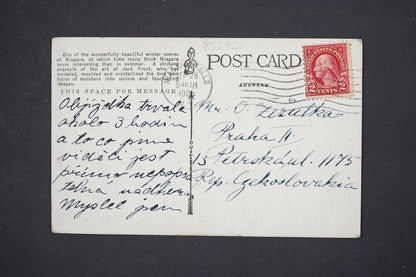 One of the wonderfully beautiful winter scenes
at Niagara, at which time many think Niagara
more interesting than in summer. A striking
example of the art of Jack Frost, who has
modeled, moulded and crystallized the tiny par-
ticles of moisture into unique and fascinating
images.
THIS SPACE FOR MESSAGE
Objížďka trvala
okolo 3 hodin
a to co jsme
viděli jest
přímo nepopsa
telná nádhera
Myslel jsem
POST CARD
ADDRESS
UNITED STATES POSTAGE
2 CENTS 2
Mr. O.
Praha II.
13 Petrská ul. 1175
Rep. Czekoslovakia